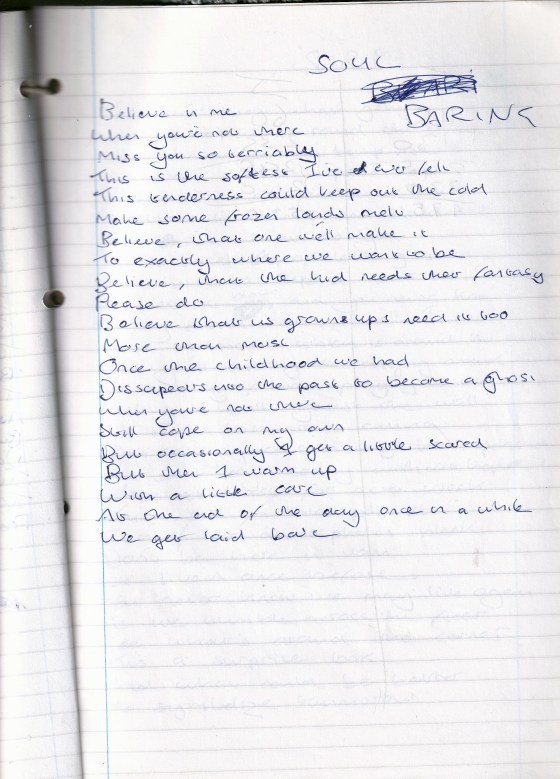 SOUL
BARING
Believe in me
When you're not there
Miss you so terriably
This is the softess I've ever felt
This tenderness could keep out the cold
Make some frozen lands melt
Believe, that one we'll make it
To exactly where we want to be
Believe, that the kid needs their fantasy
Please do
Believe that us grownups need it too
More than most
Once the childhood we had
Dissapears into the past to become a ghost
When you're not there
Still cope on my own
But occasionally I get a little scared
But then I warm up
With a little care
At the end of the day once in a while
We get laid bare